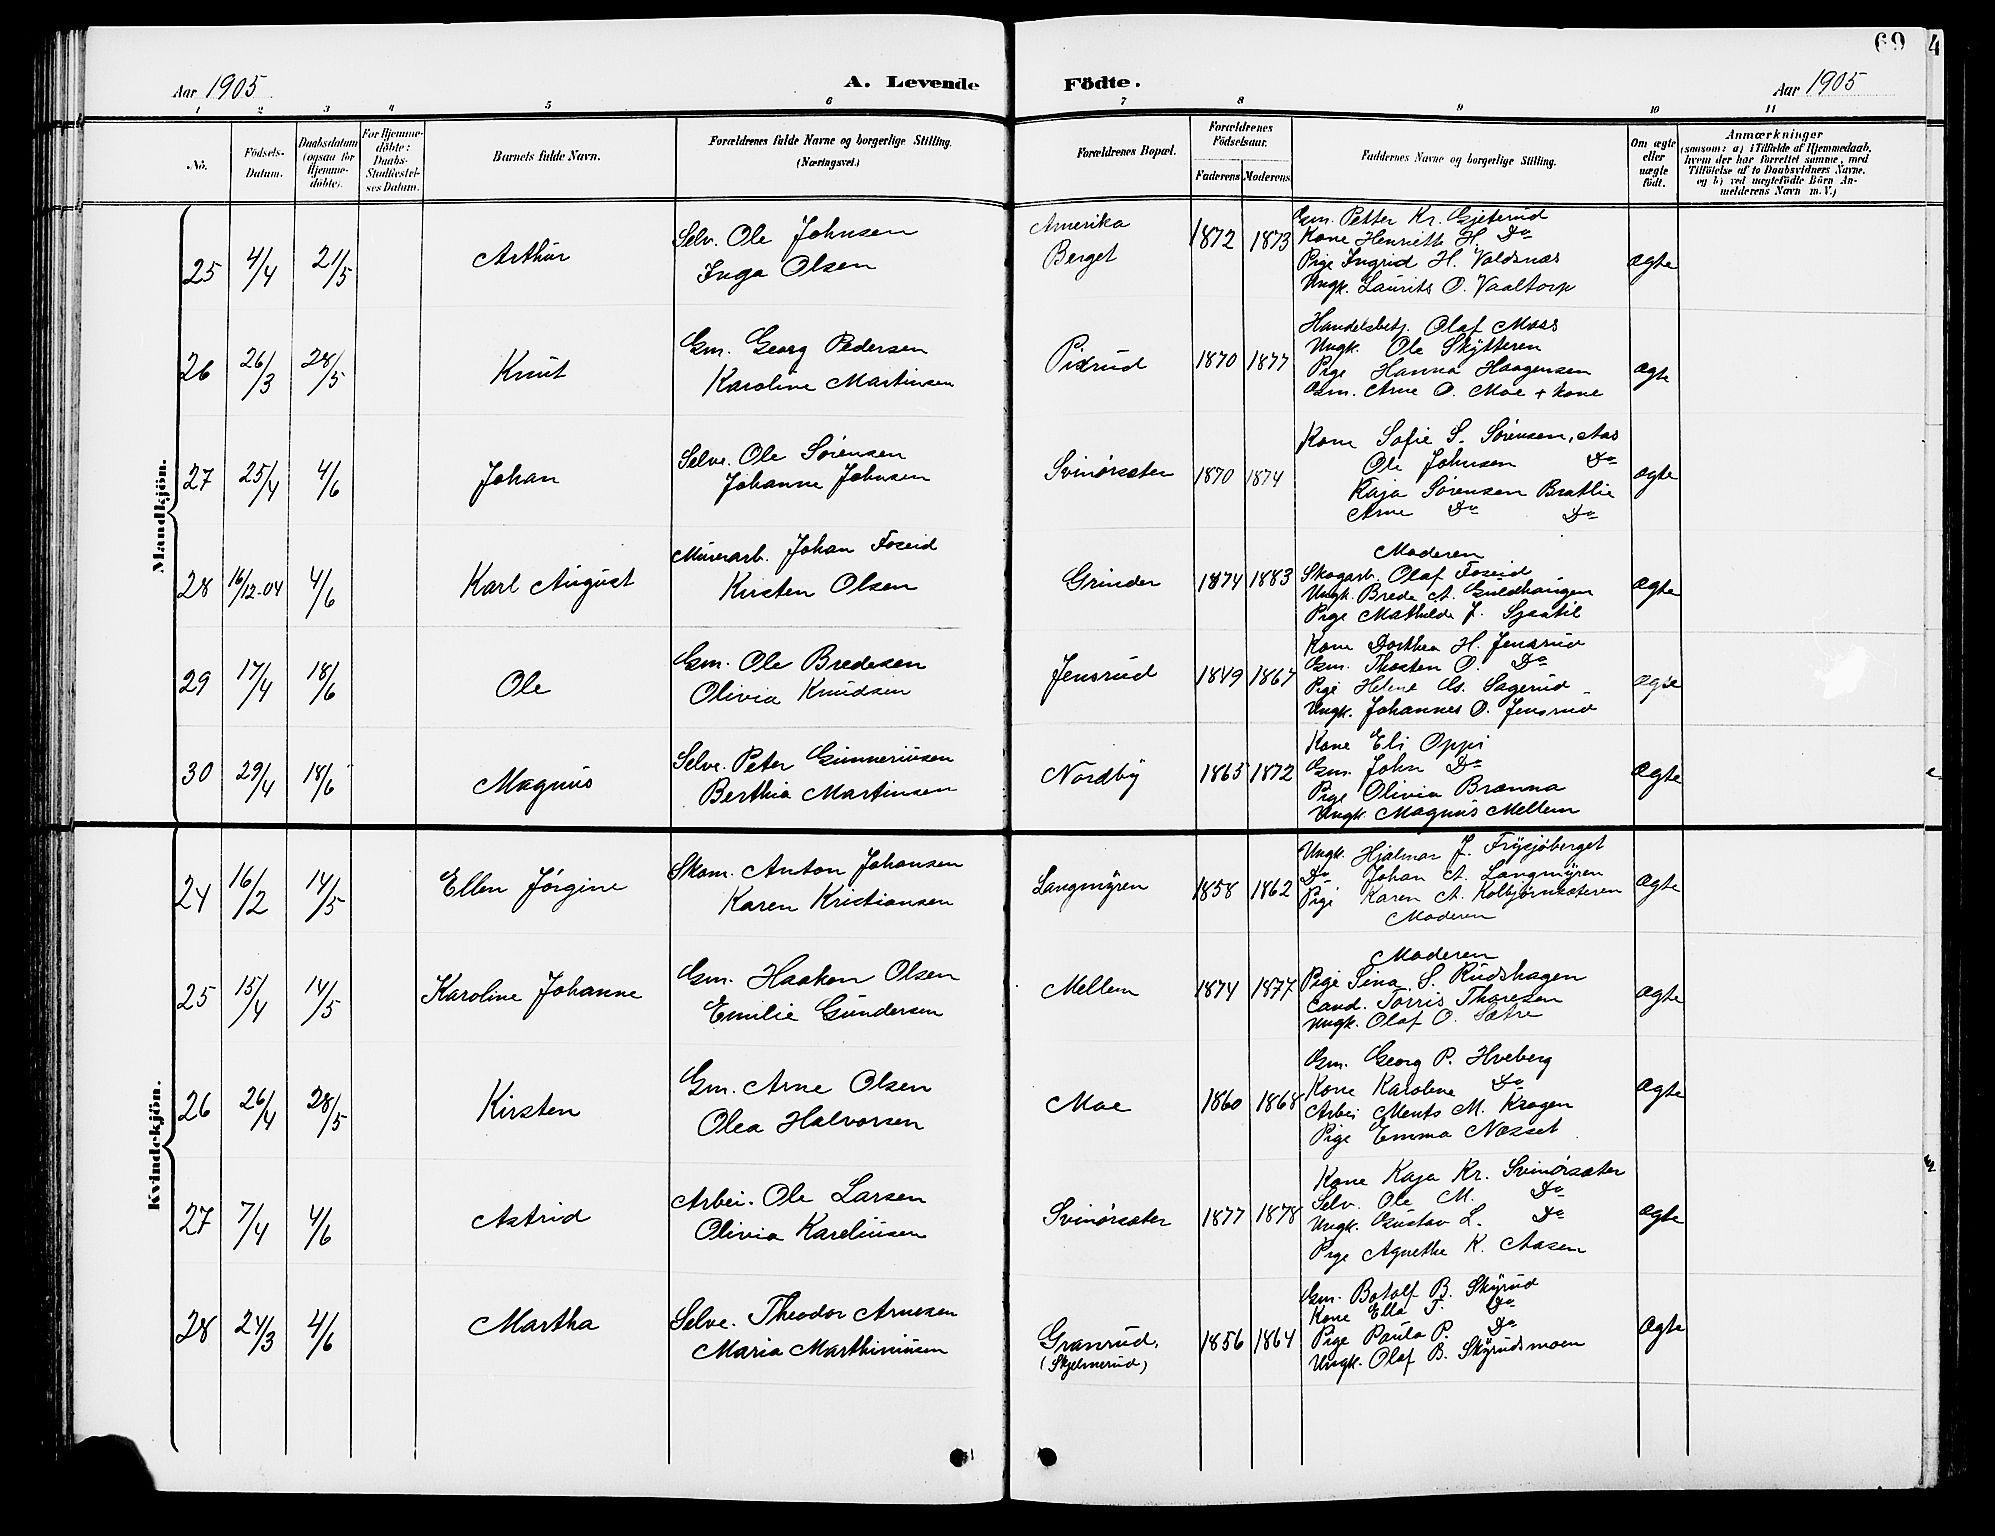 69
4
Aar 1905
A. Levende Födte.
Aar 1905
1 2 3 4 5 6 7 8 9 10 11
No.
Födsels-Datum.
Daabsdatum (ogsaa for Hjemme-döbte).
For Hjemme-döbte: Daabs-Stadfæstel-ses Datum.
Barnets fulde Navn.
Forældrenes fulde Navne og borgerlige Stilling. (Næringsvei.)
Forældrenes Bopæl.
Forældrenes Födselsaar.
Faderens Moderens
Faddernes Navne og borgerlige Stilling.
Om ægte eller uægte födt.
Anmærkninger
(saasom: a) i Tilfælde af Hjemmedaab,
hvem der har forrettet samme, med
Tilföielse af to Daabsvidners Navne,
og b) ved uægtefödte Börn An-
melderens Navn m. V.)
Mandkjön.
25 4/4 21/5 Arthur
Selv. Ole Johnsen
Inga Olsen
Amerika
Berget
1872 1873
Gm. Petter Kr. Gjeterud
Kone Henriette H. Do
Pige Ingrid H. Valdsnæs
Ungk. Laurits O. Vaaltorp
Ægte
26 26/3 28/5 Knut
Gm. Georg Pedersen
Karoline Martinsen
Pixrud
1870 1877
Handelsbetj. Olaf Moss
Ungk. Ole Skytteren
Pige Hanna Haagensen
Gm. Arne O. Moe + kone
Ægte
27 25/4 4/6 Johan
Selve. Ole Sørensen
Johanne Johnsen
Svinørsæter
1870 1874
Kone Sofie S. Sørensen, Aas
Ole Johnsen Do
Kaja Sørensen Bratlie
Arne Do Do
Ægte
28 16/12-04 4/6 Karl August
Murerarb. Johan Foseid
Kirsten Olsen
Grinder
1874 1883
Moderen
Skogarb. Olaf Foseid
Ungk. Brede A. Guldhaugen
Pige Mathilde J. Sjaatil
Ægte
29 17/4 18/6 Ole
Gm. Ole Bredesen
Olivia Knudsen
Jensrud
1849 1867
Kone Dorthea H. Jensrud
Gm. Thosten O. Do
Pige Helene Gs. Sagerud
Ungk. Johannes O. Jensrud
Ægte
30 29/4 18/6 Magnus
Selve. Peter Gunneriusen
Berthia Martinsen
Nordby
1865 1872
Kone Eli Oppi
Gm. John Do
Pige Olivia Brænna
Ungk. Magnus Mellem
Ægte
Kvindekjön.
24 16/2 14/5 Ellen Jørgine
Skom. Anton Johansen
Karen Kristiansen
Langmyren
1858 1862
Ungk. Hjalmar J. Frysjøberget
Do Johan A. Langmyren
Pige Karen A. Kolbjørnsæteren
Moderen
Ægte
25 15/4 14/5 Karoline Johanne
Gm. Haaken Olsen
Emilie Gundersen
Mellem
1874 1877
Moderen
Pige Sina S. Rudshagen
Cand. Torris Thoresen
Ungk. Olaf O. Sætre
Ægte
26 26/4 28/5 Kirsten
Gm. Arne Olsen
Olea Halvorsen
Moe
1860 1868
Gm. Georg P. Hveberg
Kone Karoline Do
Arbei Ments M. Krogen
Pige Emma Næsset
Ægte
27 7/4 4/6 Astrid
Arbei. Ole Larsen
Olivia Kareliusen
Svinørsæter
1877 1878
Kone Kaja Kr. Svinørsæter
Selv. Ole M. Do
Ungk. Gustav L. Do
Pige Agnethe K. Aasen
Ægte
28 24/3 4/6 Martha
Selve. Theodor Arnesen
Maria Marthiniusen
Granrud,
(Skjelmerud)
1856 1864
Gm. Botolf B. Skyrud
Kone Ella T. Do
Pige Paula P. Do
Ungk. Olaf B. Skyrudsmoen
Ægte